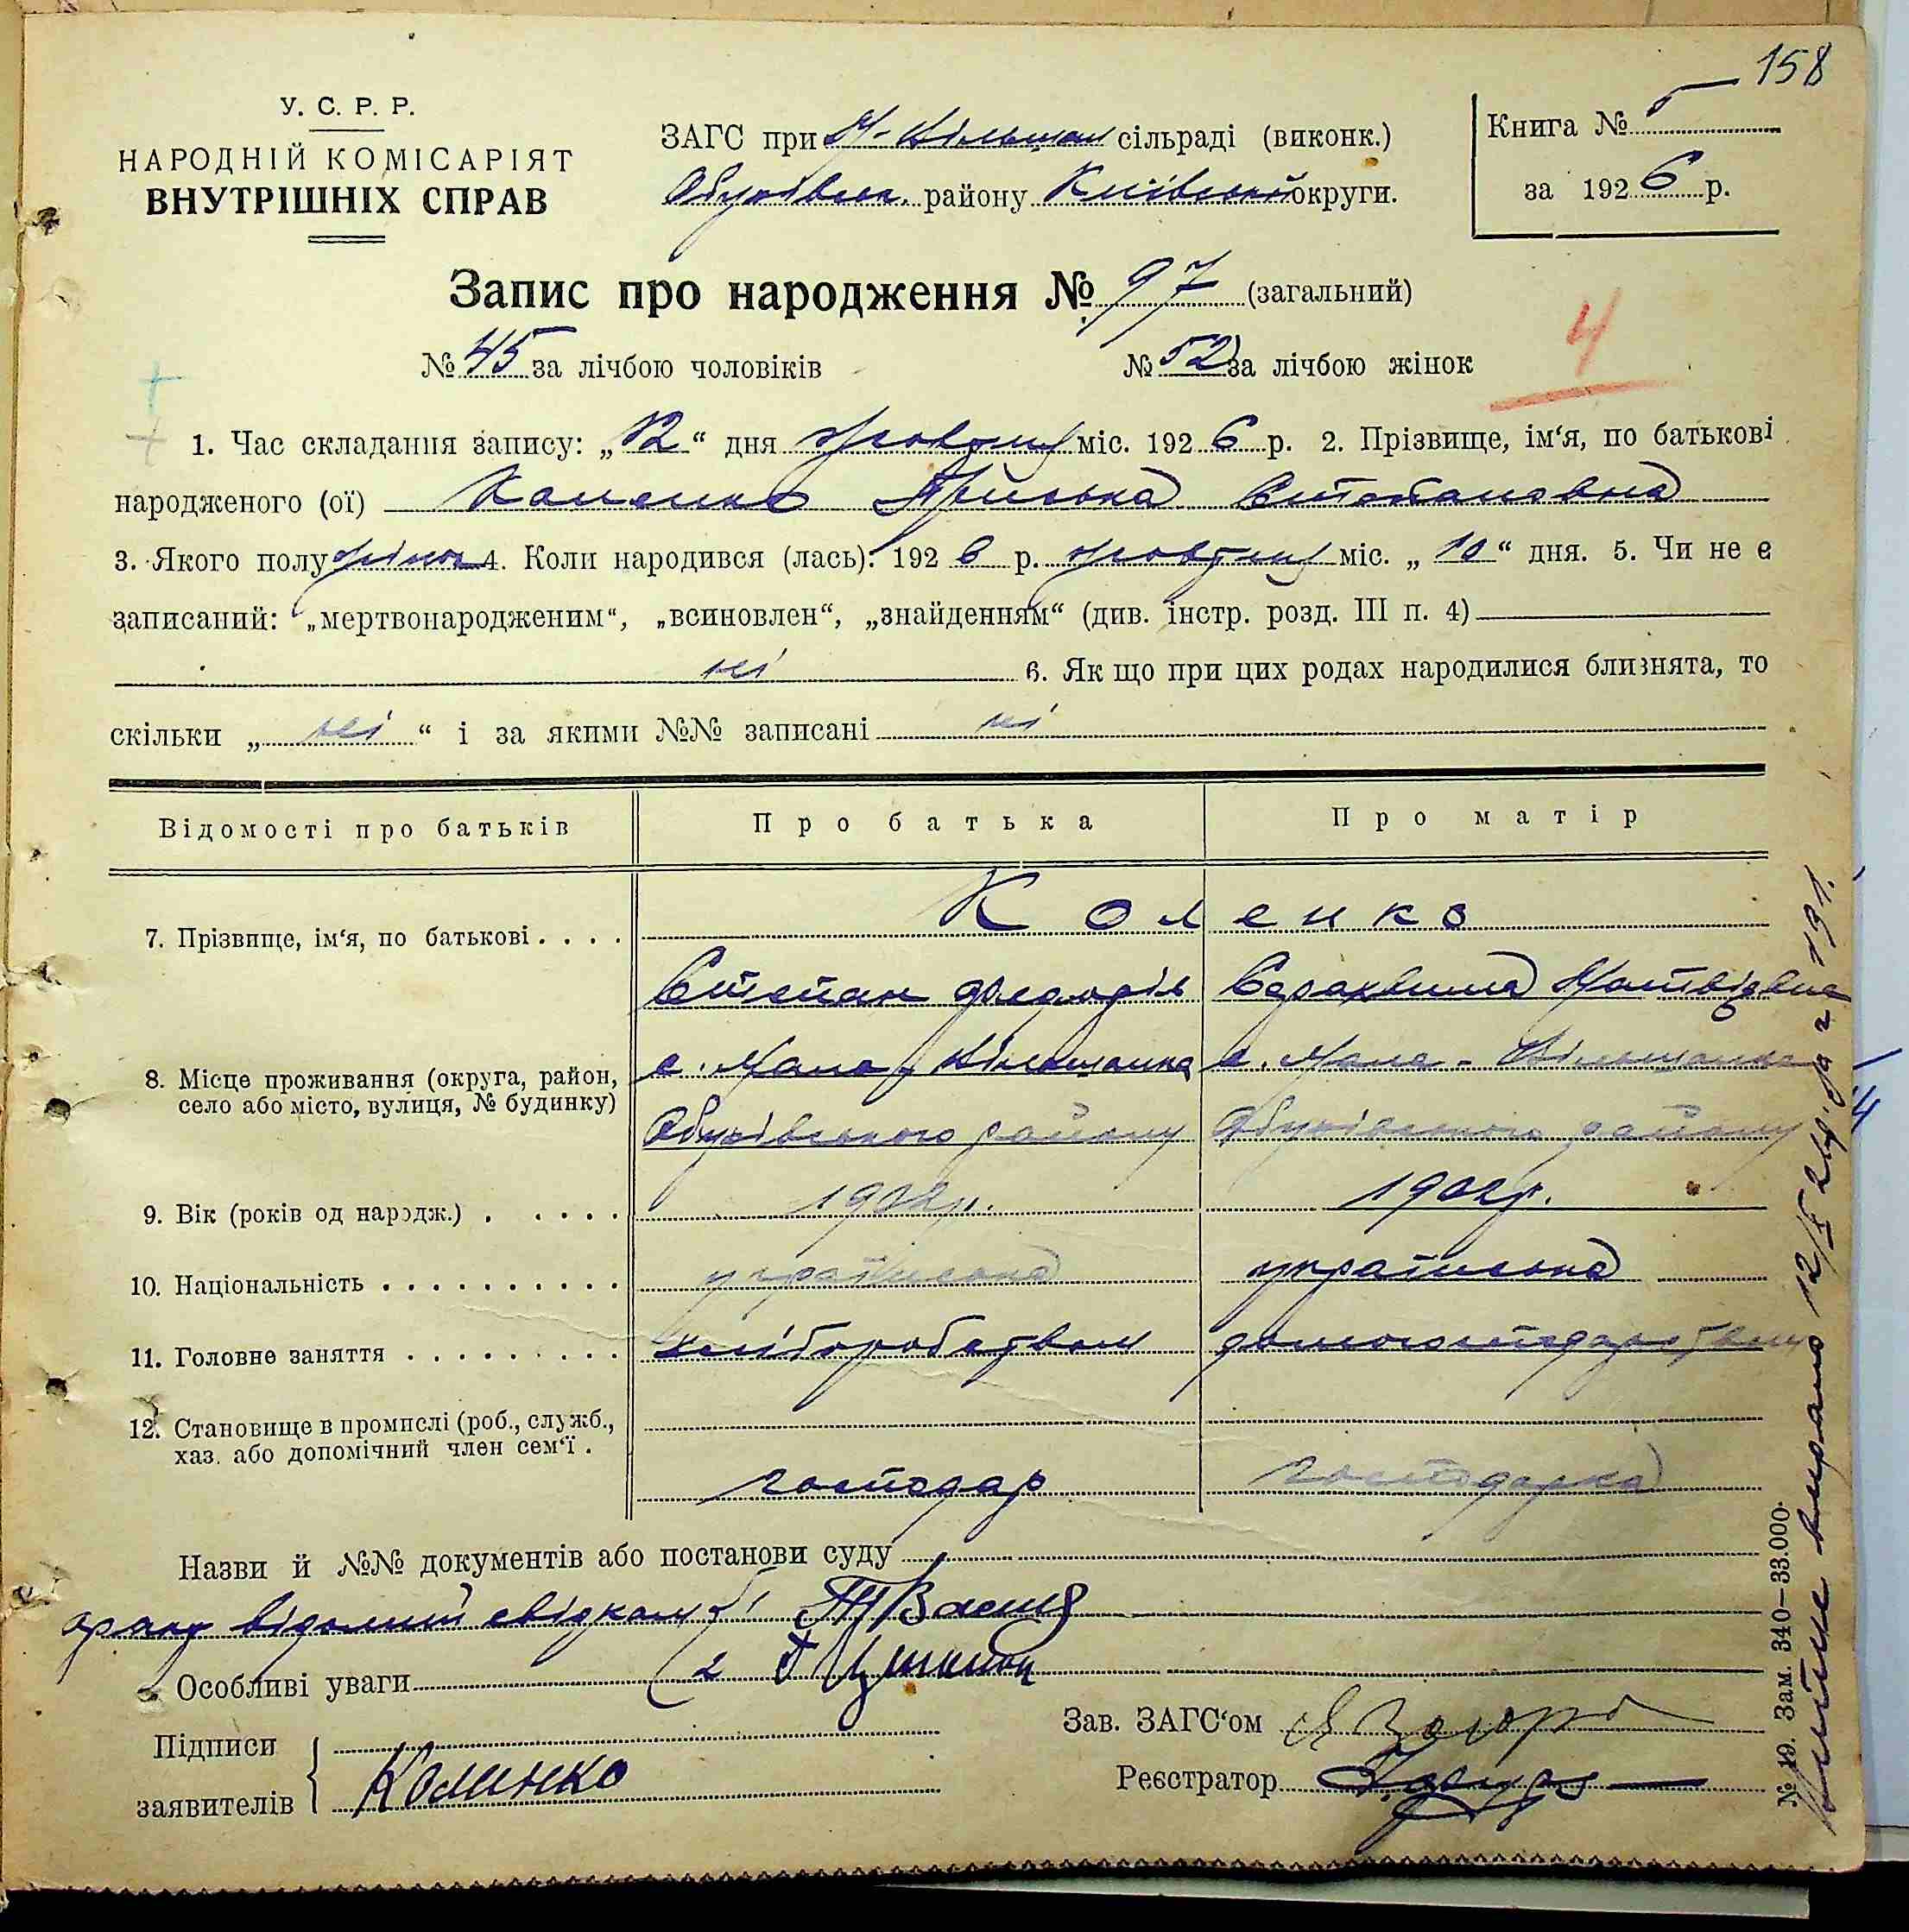 158
У. С. Р. Р.
НАРОДНІЙ КОМІСАРІЯТ
ВНУТРІШНІХ СПРАВ
ЗАГС при М-Вільшан сільраді (виконк.)
Обухівськ. району Київської округи.
Книга №
за 1926 р.
Запис про народження № 97 (загальний)
№ 45 за лічбою чоловіків № 52 за лічбою жінок
4
1. Час складання запису: „12“ дня жовтня міс. 1926 р. 2. Прізвище, ім‘я, по батькові
народженого (ої) Коленко Приська Степановна
3. Якого полу жіноч 4. Коли народився (лась): 1926 р. жовтня міс. „10“ дня. 5. Чи не є
записаний: „мертвонародженим“, „всиновлен“, „знайденням“ (див. інстр. розд. III п. 4)
ні 6. Як що при цих родах народилися близнята, то
скільки „ні“ і за якими №№ записані ні
Відомості про батьків Про батька Про матір
7. Прізвище, ім‘я, по батькові
Коленко
Степан Федорів Серахвима Матвіївна
8. Місце проживання (округа, район,
село або місто, вулиця, № будинку)
с. Мала-Вільшанка с. Мала-Вільшанка
Обухівського району Обухівського району
9. Вік (років од народж.) 1902р. 1902р.
10. Національність українська українська
11. Головне заняття хліборобством домогосподарством
12. Становище в промислі (роб., служб.,
хаз. або допомічний член сем‘ї.
господар господарка
Назви й №№ документів або постанови суду
відомий свідкам 1
Особливі уваги 2
Підписи
заявителів Коленко
Зав. ЗАГС‘ом
Реєстратор
№ 19. Зам. 340—33.000.